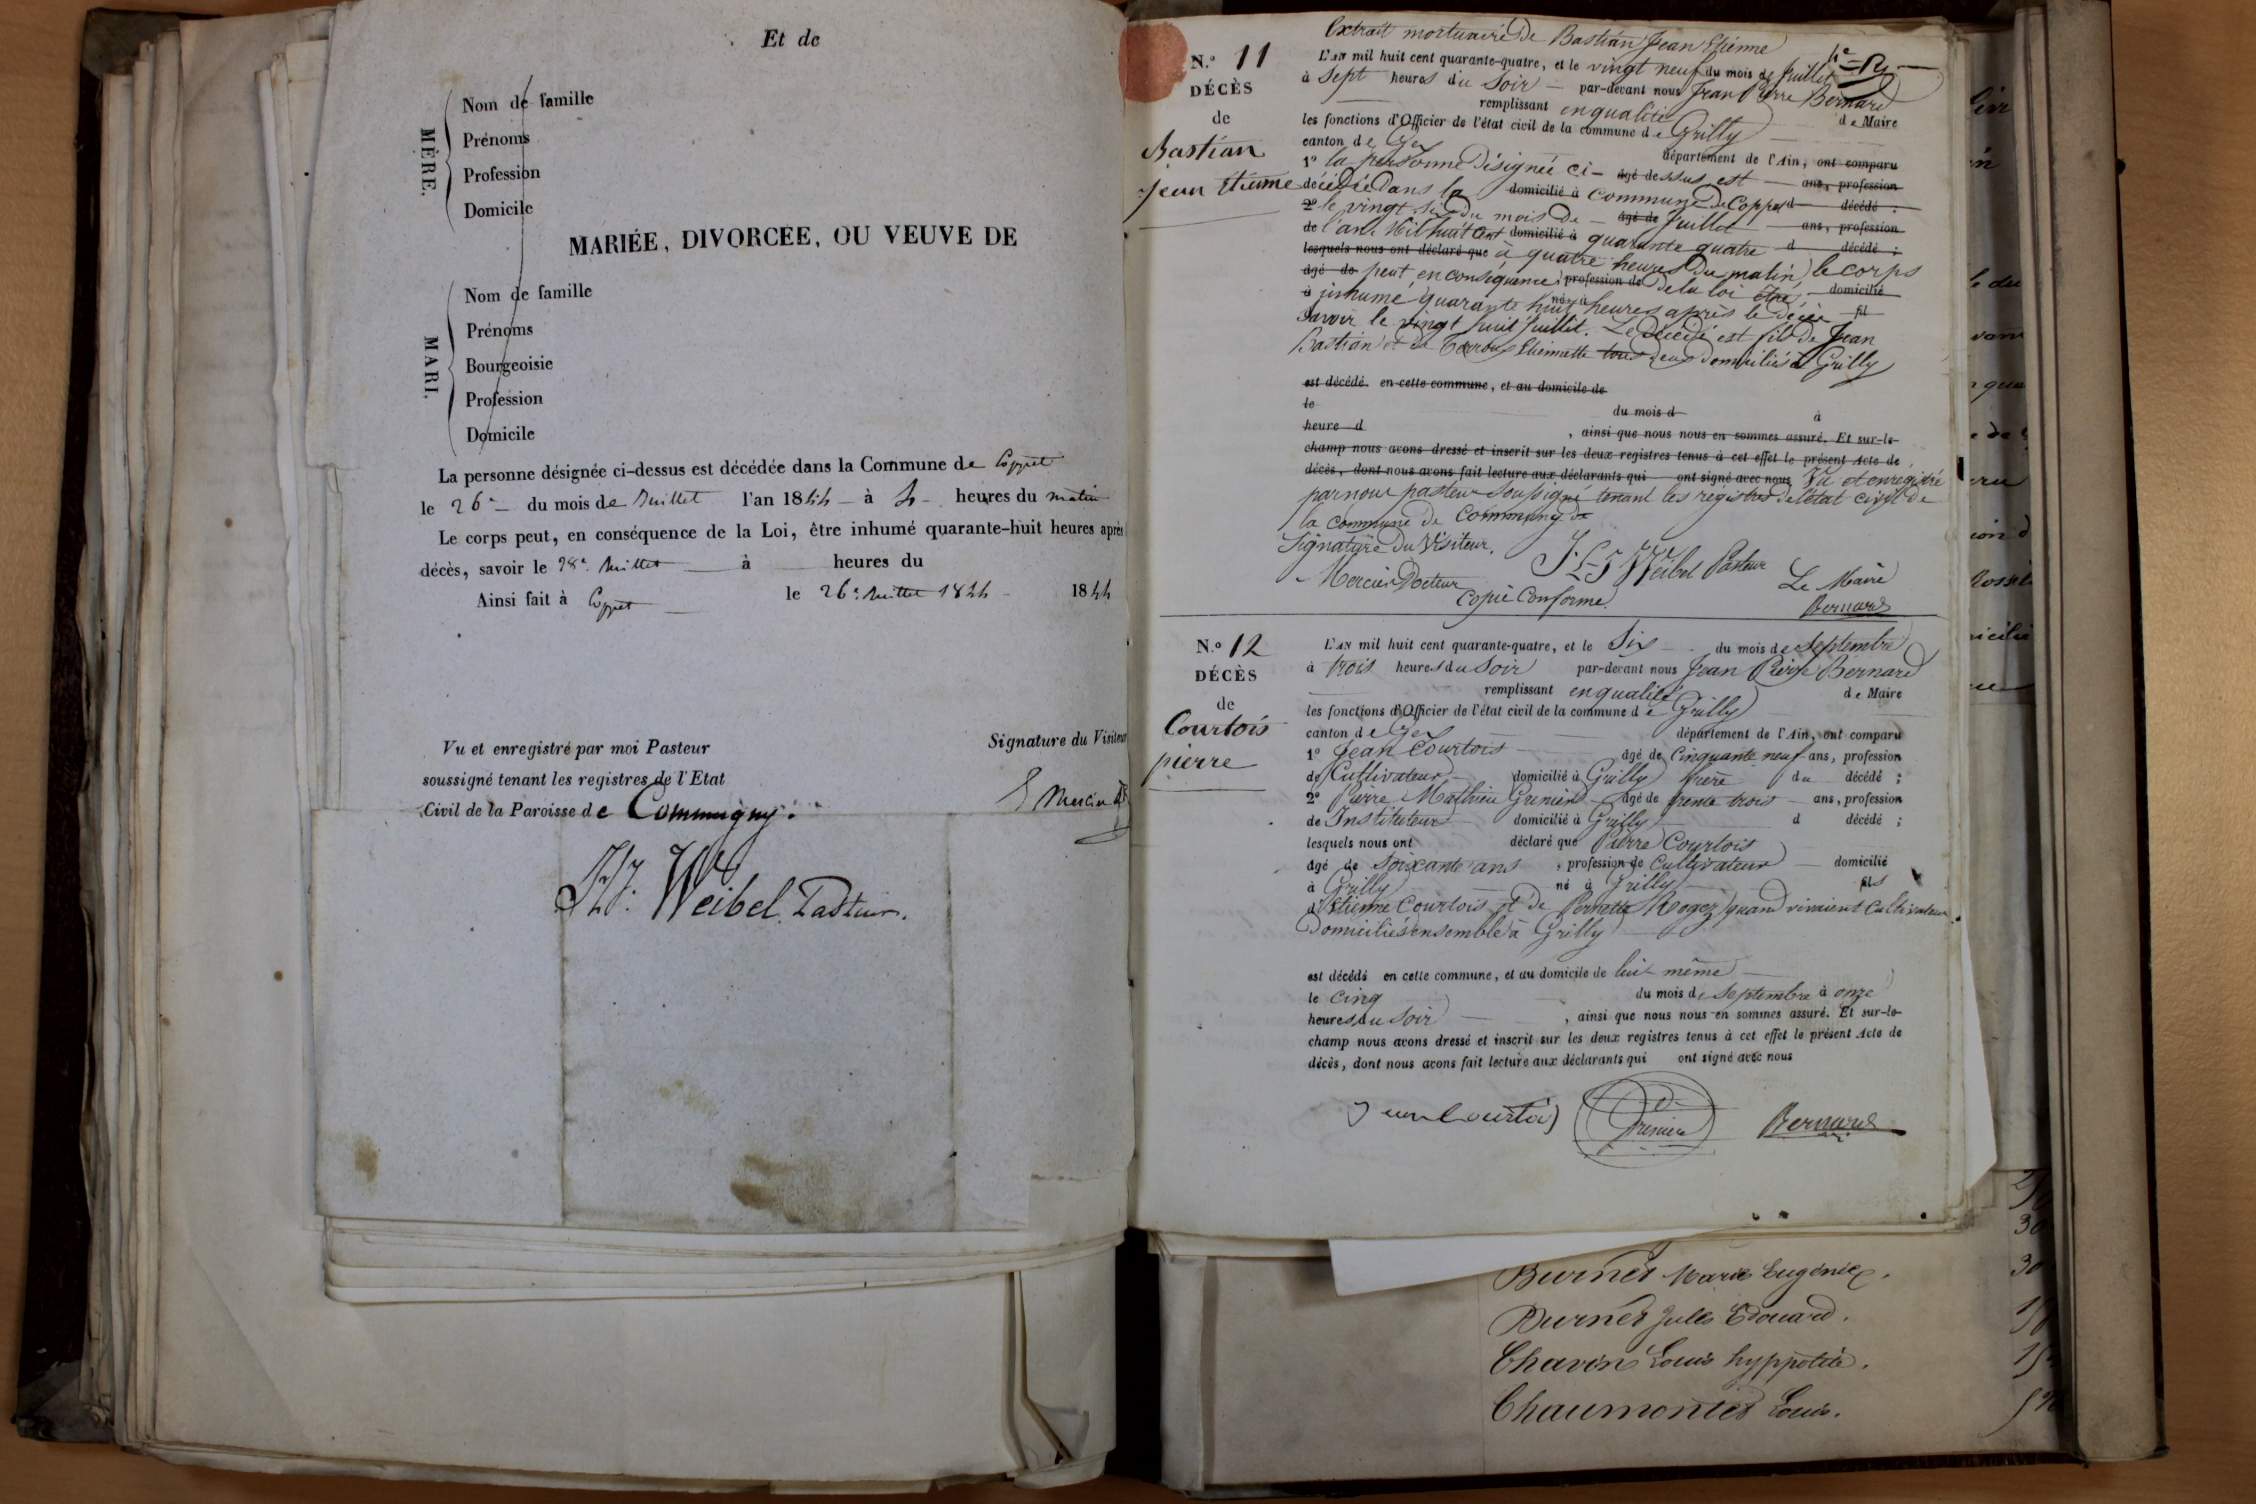 Et de
MÈRE.
Nom de famille
Prénoms
Profession
Domicile
MARIÉE, DIVORCÉE, OU VEUVE DE
MARI.
Nom de famille
Prénoms
Bourgeoisie
Profession
Domicile
La personne désignée ci-dessus est décédée dans la Commune de Coppet
le 26e du mois de Juillet l'an 1844 à 4 heures du matin
Le corps peut, en conséquence de la Loi, être inhumé quarante-huit heures après
décès, savoir le 28e Juillet à heures du
Ainsi fait à Coppet le 26e Juillet 1844 1844
Vu et enregistré par moi Pasteur
soussigné tenant les registres de l'Etat
Civil de la Paroisse de Commugny.
Signature du Visiteur
Mercier
Weibel Pasteur.
Extrait mortuaire de Bastian Jean Etienne
N.º 11
DÉCÈS
de
Bastian
Jean Etienne
L'AN mil huit cent quarante-quatre, et le vingt neuf du mois de Juillet
à Sept heures du Soir par-devant nous Jean Pierre Bernard
remplissant en qualité de Maire
les fonctions d'Officier de l'état civil de la commune de Grilly
canton de Gex département de l'Ain, ont comparu
1º la personne désignée ci- agé de ssus est ans, profession
décédée dans la domicilié à commune de Coppet d décédé ;
2º le vingt six du mois de agé de Juillet ans, profession
de l'an Mil huit cent domicilié à quarante quatre d décédé ;
lesquels nous ont déclaré que à quatre heures du matin le corps
agé de peut en conséquence profession de de la loi être domicilié
à inhumé quarante huit né à heures après le décès fil
Savoir le vingt huit Juillet. Le Décédé est fils de Jean
Bastian et de Etiennette tous deux domiciliés à Grilly
est décédé en cette commune, et au domicile de
le du mois d à
heure d , ainsi que nous nous en sommes assuré. Et sur-le-
champ nous avons dressé et inscrit sur les deux registres tenus à cet effet le présent Acte de
décès, dont nous avons fait lecture aux déclarants qui ont signé avec nous Vu et enregistré
par nous pasteur Soussigné tenant les registres de l'état civil de
la commune de Commugny
Signature du Visiteur.
Weibel Pasteur
Mercier Docteur
Le Maire
Copie Conforme.
Bernard
N.º 12
DÉCÈS
de
Courtois
pierre
L'AN mil huit cent quarante-quatre, et le Six du mois de Septembre
à trois heures du Soir par-devant nous Jean Pierre Bernard
remplissant en qualité de Maire
les fonctions d'Officier de l'état civil de la commune de Grilly
canton de Gex département de l'Ain, ont comparu
1º Jean Courtois agé de Cinquante neuf ans, profession
de Cultivateur domicilié à Grilly frère du décédé ;
2º Pierre Mathieu Grenier agé de trente trois ans, profession
de Instituteur domicilié à Grilly d décédé ;
lesquels nous ont déclaré que Pierre Courtois
agé de Soixante ans , profession de Cultivateur domicilié
à Grilly né à Grilly fils
d'Etienne Courtois et de Pernette Roger quand vivaient Cultivateurs
Domiciliés ensemble à Grilly
est décédé en cette commune, et au domicile de lui même
le cinq du mois de Septembre à onze
heures du Soir , ainsi que nous nous en sommes assuré. Et sur-le-
champ nous avons dressé et inscrit sur les deux registres tenus à cet effet le présent Acte de
décès, dont nous avons fait lecture aux déclarants qui ont signé avec nous
Jean Courtois Grenier Bernard
Burnet Marie Eugénie.
Burnet Jules Edouard.
Chavin Louis hyppolite.
Chaumontet Louis.